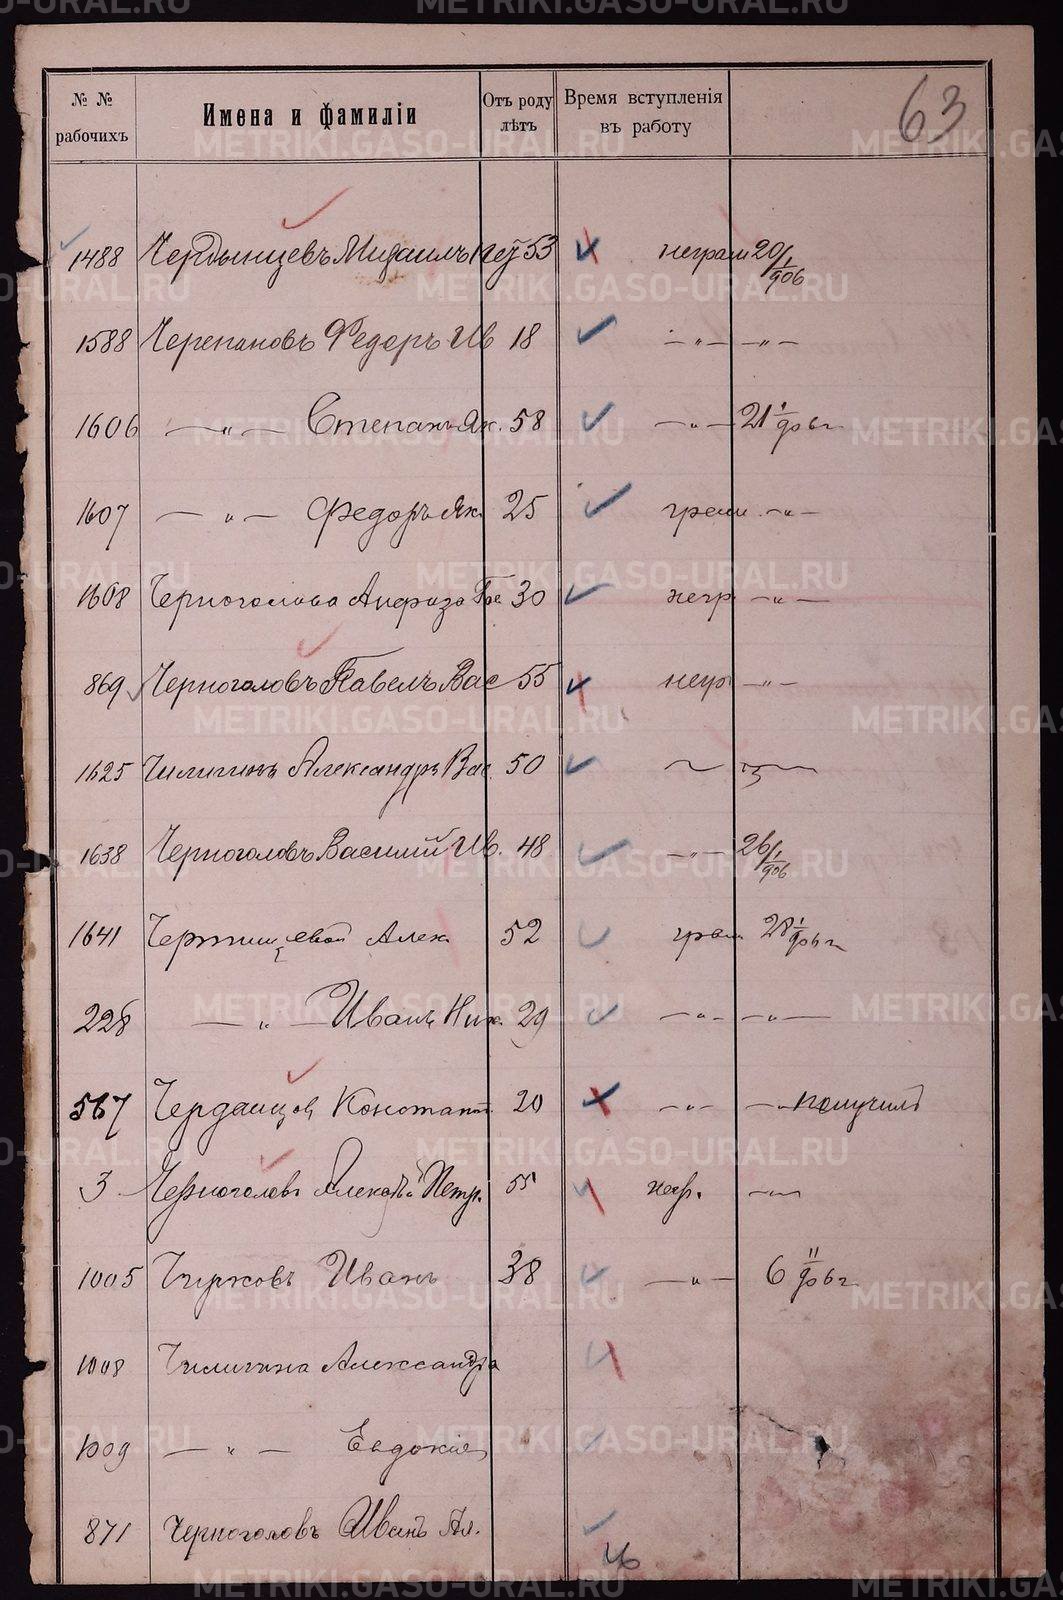 № № рабочихъ Имена и фамиліи Отъ роду лѣтъ Время вступленія въ работу 63
1488 Чердынцевъ Михаилъ 53 неграм 20/I 906
1588 Черепановъ Федоръ Ив 18 — „ — — „ —
1606 — „ — Степанъ Як. 58 — „ — 21 I 906 г
1607 — „ — Федоръ Як. 25 грам. — „ —
1608 Черноголова Анфиза Гр 30 негр — „ —
869 Черноголовъ Павелъ Вас 55 негр — „ —
1625 Чилигинъ Александръ Вас. 50
1638 Черноголовъ Василий Ив. 48 — „ — 26/I 906
1641 Алек. 52 грам 28 I 906 г
228 — „ — Иванъ Ник. 29 — „ — — „ —
567 Константи. 20 — „ — — „ — получилъ
3 Черноголовъ Петр. 55 негр. — „ —
1005 Чирковъ Иванъ 38 — „ — 6 II 906 г
1008 Чилигина Александра
1009 — „ — Евдокия
871 Черноголовъ Иванъ Ал.
METRIKI.GASO-URAL.RU